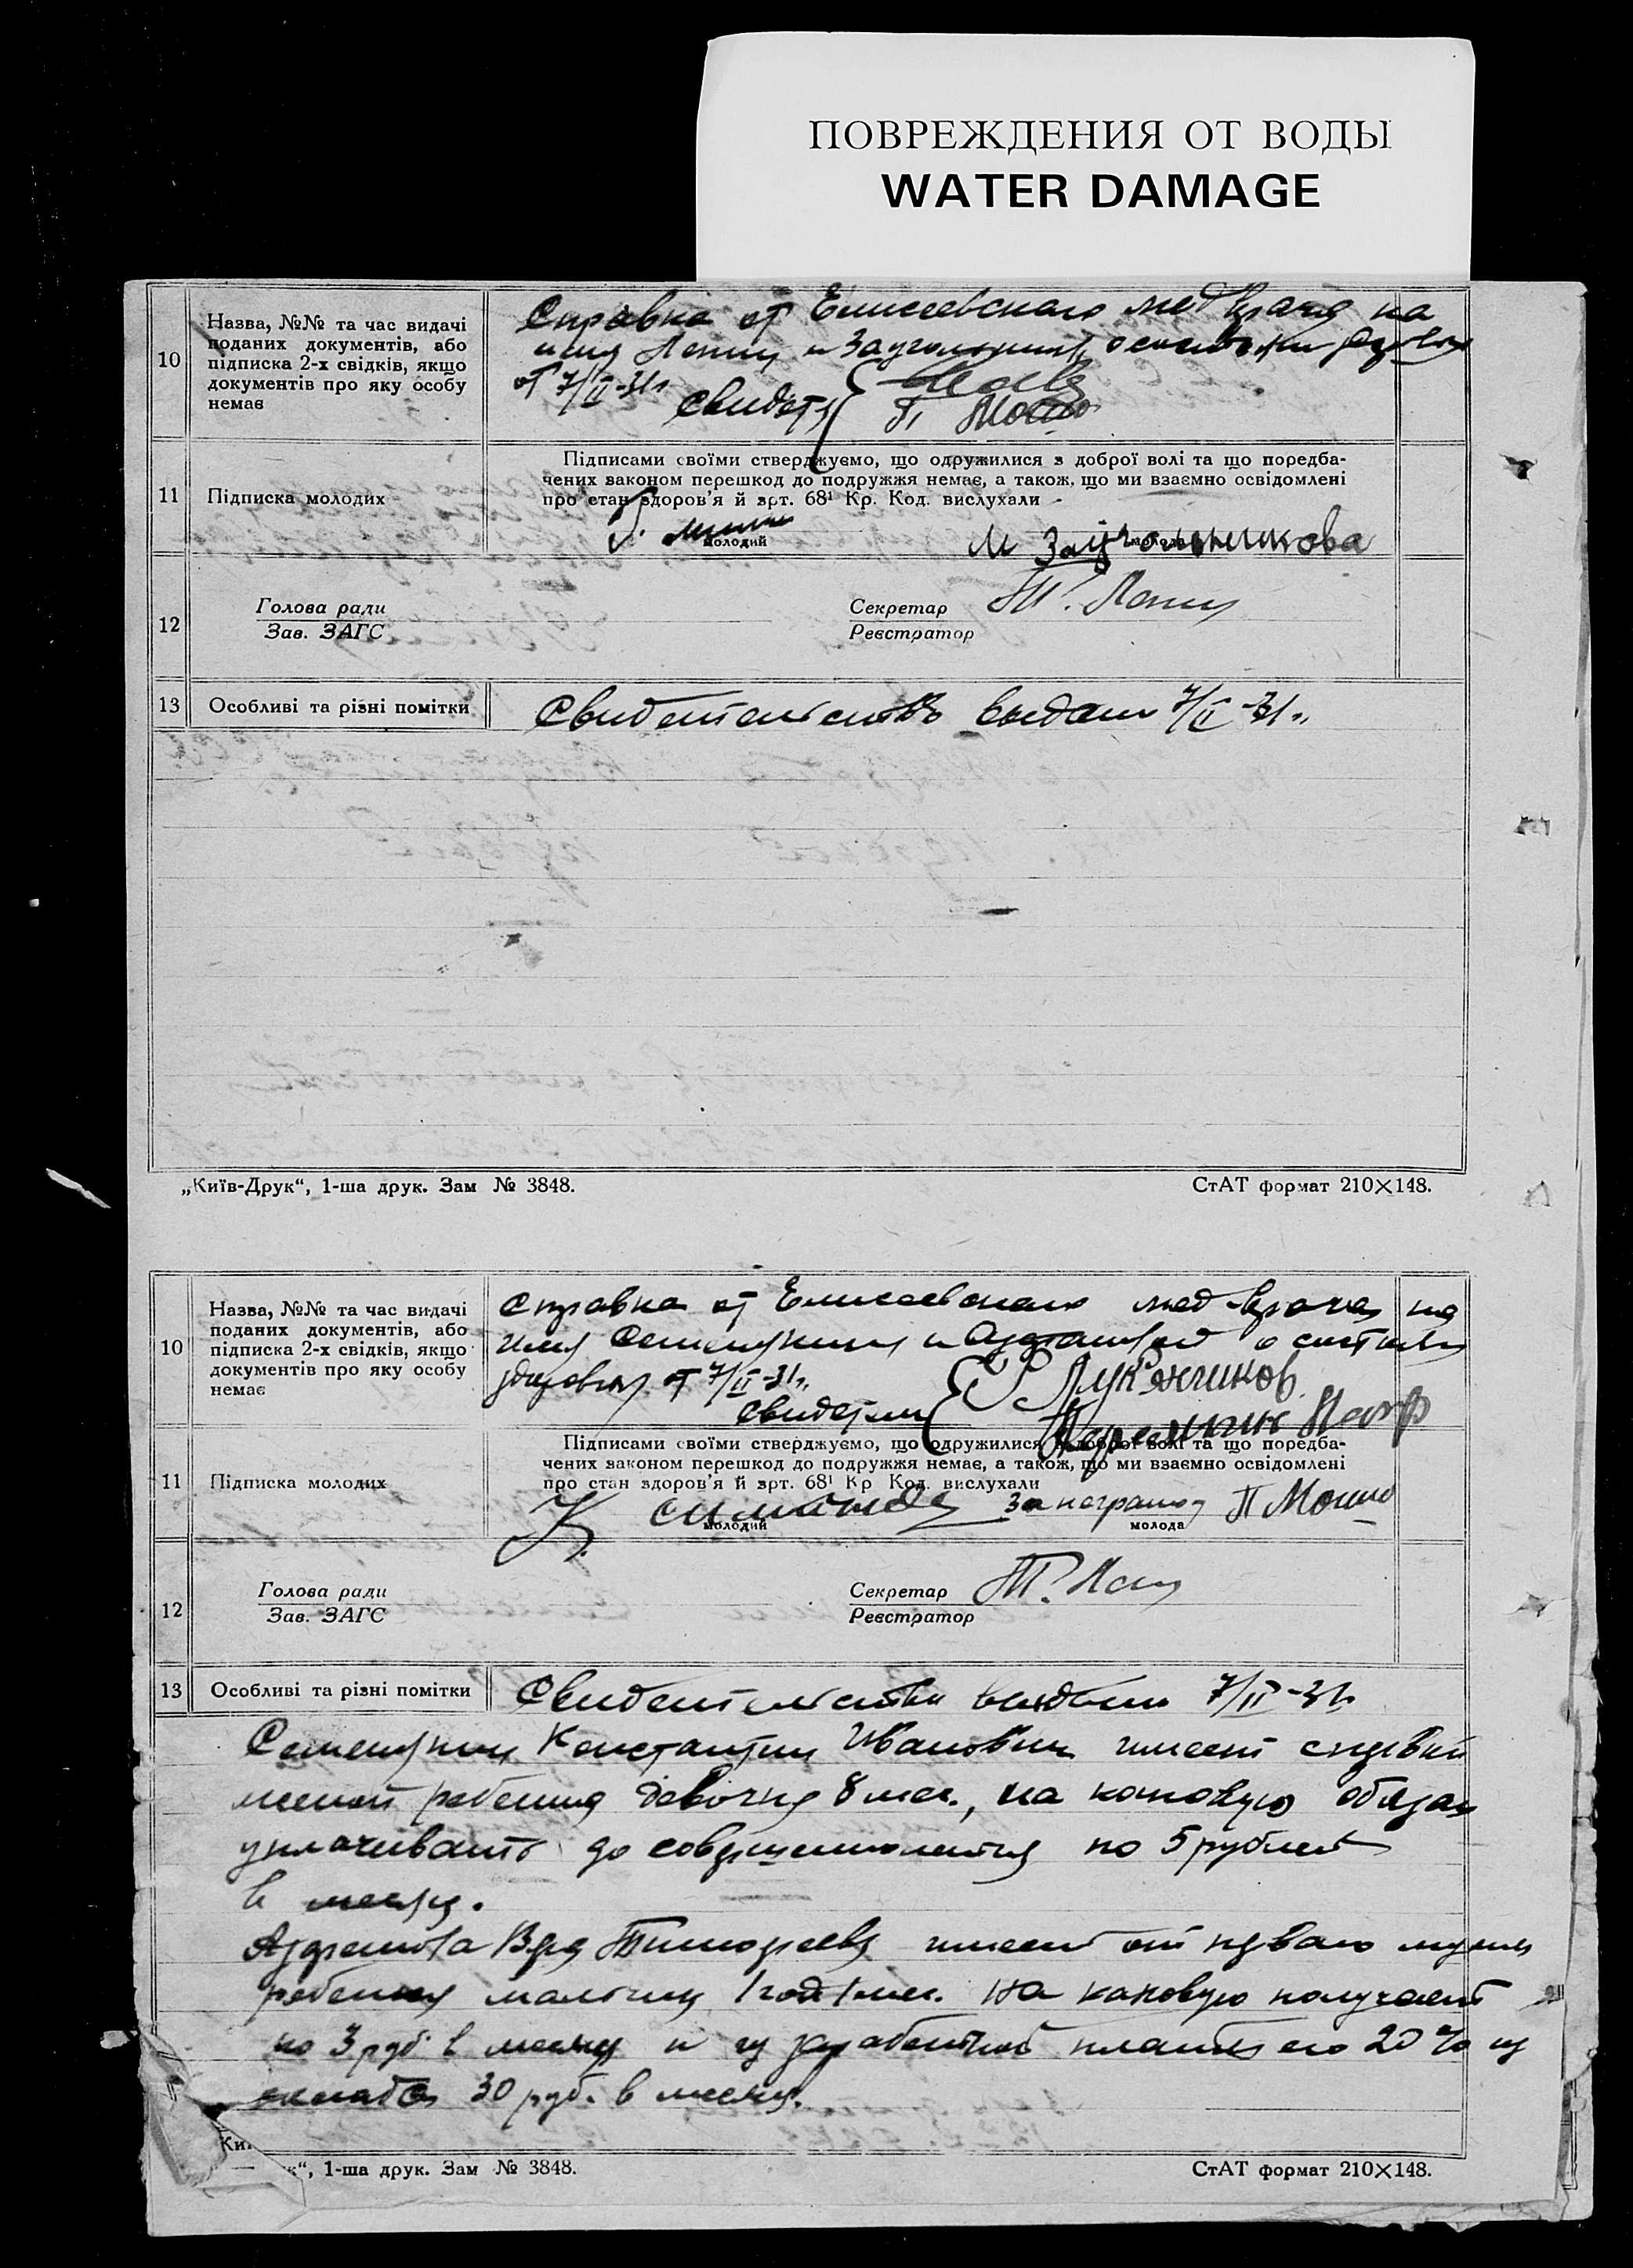 ПОВРЕЖДЕНИЯ ОТ ВОДЫ
WATER DAMAGE
10
Назва, №№ та час видачі
поданих документів, або
підписка 2-х свідків, якщо
документів про яку особу
немає
Справка от Елисеевского мед врача на
имя и Заугольников
от 7/II-31г.
свидет
П Мошо
11
Підписка молодих
Підписами своїми стверджуємо, що одружилися з доброї волі та що поредба-
чених законом перешкод до подружжя немає, а також, що ми взаємно освідомлені
про стан здоров'я й арт. 68¹ Кр. Код. вислухали
молодий
молода
М Заугольникова
12
Голова ради
Зав. ЗАГС
Секретар
Реєстратор
Т.
13
Особливі та різні помітки
Свидетельство выдано 7/II-31г.
„Київ-Друк“, 1-ша друк. Зам № 3848.
СтАТ формат 210×148.
10
Назва, №№ та час видачі
поданих документів, або
підписка 2-х свідків, якщо
документів про яку особу
немає
Справка от Елисеевского мед-врача на
имя и о состоянии
здоровья от 7/II-31г.
свидетели
Лук'янчиков
11
Підписка молодих
Підписами своїми стверджуємо, що одружилися з доброї волі та що поредба-
чених законом перешкод до подружжя немає, а також, що ми взаємно освідомлені
про стан здоров'я й арт. 68¹ Кр Код. вислухали
К.
молодий
за неграмот
молода
П Мошо
12
Голова ради
Зав. ЗАГС
Секретар
Реєстратор
Т.
13
Особливі та різні помітки
Свидетельство выдано 7/II-31г.
Константин Иванович имеет с первой
женой ребенка девочка 8 мес., на каковую обязан
уплачивать до совершеннолетия по 5 рублей
в месяц.
имеет от первого мужа
ребенка мальчик 1 год 1 мес. на каковую получает
по 3 руб. в месяц и из заработной платы его 20% из
30 руб. в месяц.
Киї
к“, 1-ша друк. Зам № 3848.
СтАТ формат 210×148.